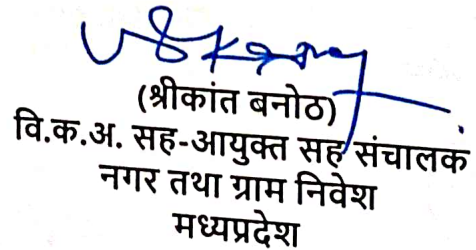 (श्रीकांत बनोठ)
वि.क.अ. सह-आयुक्त सह संचालक
नगर तथा ग्राम निवेश
मध्यप्रदेश